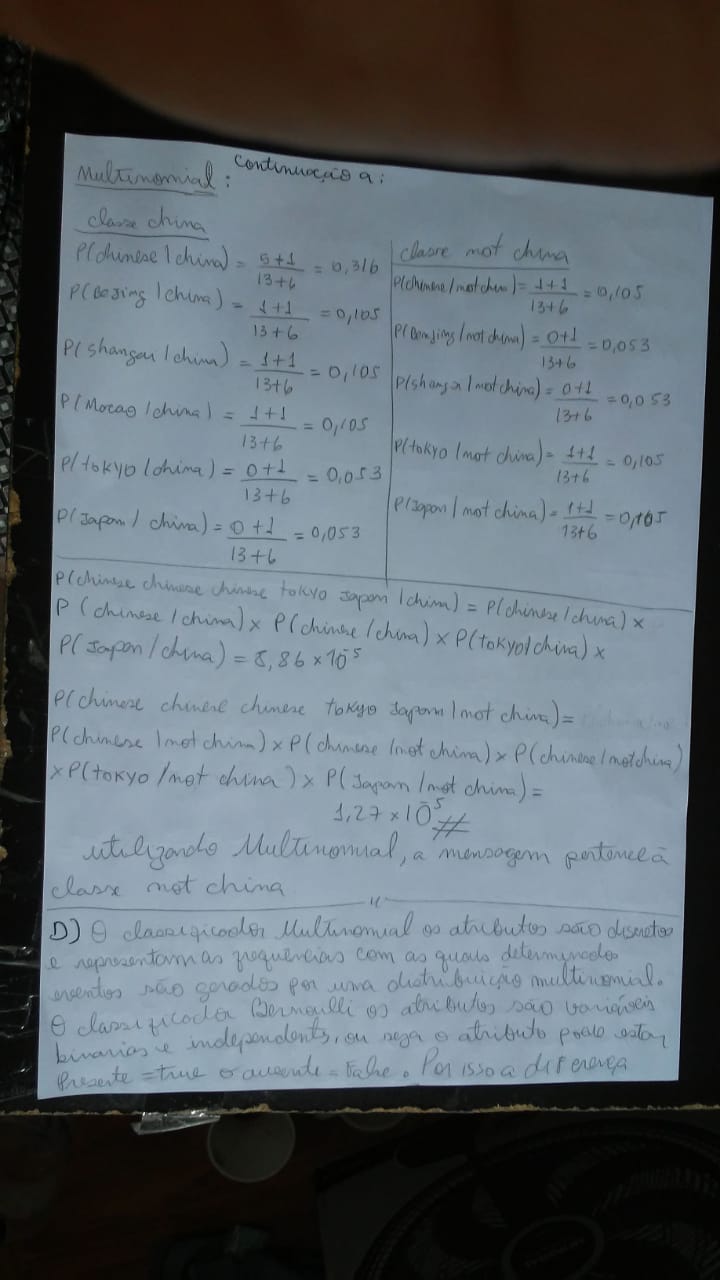 Multinomial: Continuação a:
classe china
P(chinese/china) = 5+1/13+6 = 0,316
P(Beijing/china) = 1+1/13+6 = 0,105
P(shangai/china) = 1+1/13+6 = 0,105
P(Macao/china) = 1+1/13+6 = 0,105
P(tokyo/china) = 0+1/13+6 = 0,053
P(Japon/ china) = 0+1/13+6 = 0,053
classe not china
P(chinese/not china) = 1+1/13+6 = 0,105
/not china) = 0+1/13+6 = 0,053
/not china) = 0+1/13+6 = 0,053
P(tokyo/not china) = 1+1/13+6 = 0,105
P(Japon/not china) = 1+1/13+6 = 0,105
P(chinese chinese chinese tokyo Japon/china) = P(chinese/china) x
P(chinese/china) x P(chinese/china) x P(tokyo/china) x
P(Japon/china) = 8,86 x 10^-5
P(chinese chinese chinese tokyo Japon/not china) =
P(chinese/not china) x P(chinese/not china) x P(chinese/not china)
x P(tokyo/not china) x P(Japan/not china) =
1,27 x 10^-5 #
utilizando Multinomial, a mensagem pertence à
classe not china
D) O classificador Multinomial os atributos são discretos
e representam as frequências com as quais determinados
eventos são gerados por uma distribuição multinomial.
O classificador Bernoulli os atributos são variáveis
binarias e independents, ou seja o atributo pode estar
Presente = true o ausente = False. Por isso a diferença